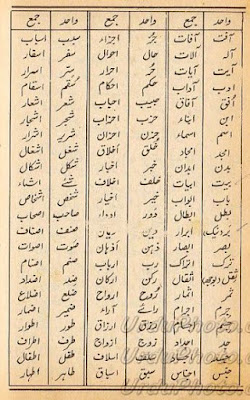 واحد جمع واحد جمع واحد جمع
آفت آفات جزو اجزاء سبب اسباب
آلہ آلات حال احوال سفر اسفار
آیت آیات حُر احرار سِر اسرار
ادب آداب حکم احکام سُقم اسقام
اُفق آفاق حبیب احباب شعر اشعار
ابن ابناء حزب احزاب شجر اشجار
اسم اسماء حزن احزان شریر اشرار
امجد امجاد خلق اخلاق شغل اشغال
بدن ابدان خبر اخبار شکل اشکال
بیت ابیات خلف اخلاف شے اشیاء
باب ابواب خیر اخیار شخص اشخاص
بطل ابطال دور ادوار صاحب اصحاب
بَر (نیک) ابرار دین ادیان صنف اصناف
بصر ابصار ذہن اذہان صوت اصوات
ترک اتراک رب ارباب صنم اصنام
ثقل (بوجھ) اثقال رکن ارکان ضد اضداد
ثمر اثمار روح ارواح ضلع اضلاع
جرم اجرام رائے آراء ضمیر اضمار
جسم اجسام رزق ارزاق طور اطوار
جد اجداد زوج ازواج طرف اطراف
سلف اسلاف طفل اطفال
جنس اجناس سبق اسباق طاہر اطہار
UrduPhoto.com